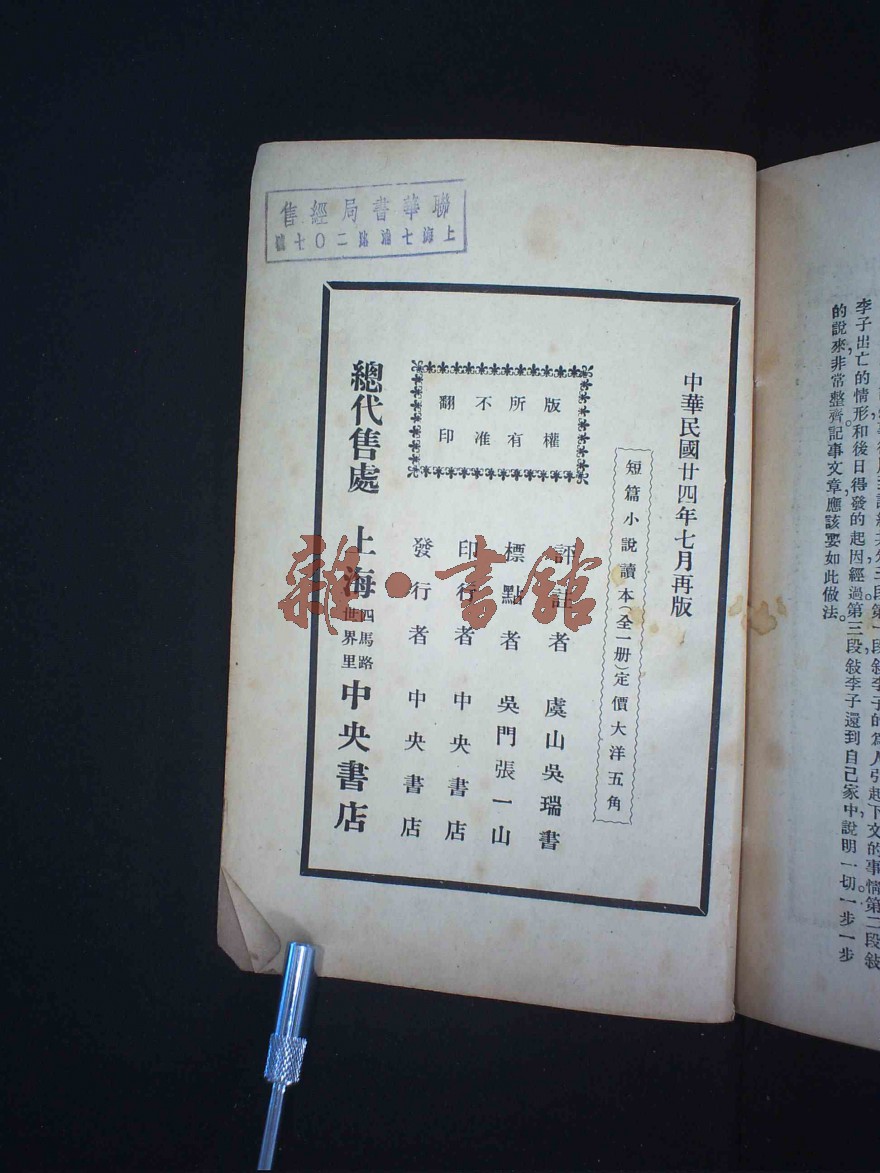 聯華書局經售
上海七浦路二〇七號
中華民國廿四年七月再版
短篇小說讀本(全一册)定價大洋五角
版權
所有
不准
翻印
評註者 虞山吳瑞書
標點者 吳門張一山
印行者 中央書店
發行者 中央書店
總代售處 上海四馬路世界里中央書店
雜·書館
李子出亡的情形和後日得發的起因經過。第三段敍李子還到自己家中說明一切一步一步
的說來,非常整齊。記事文章應該要如此做法。